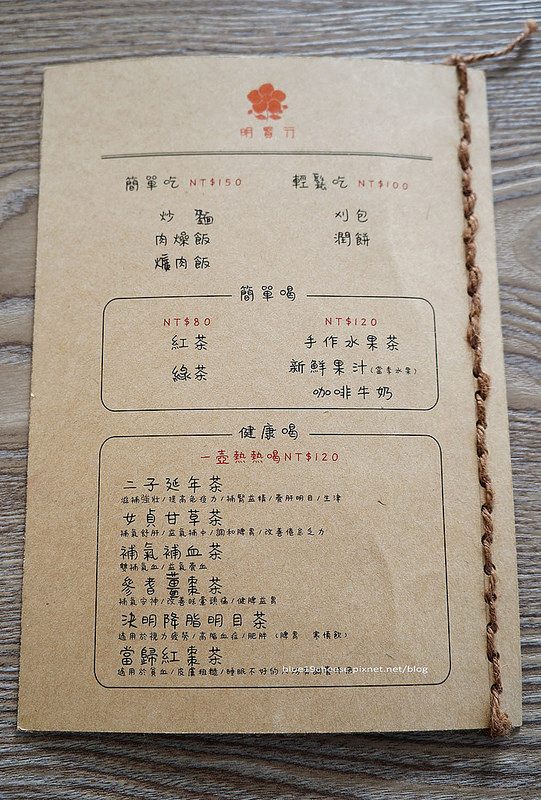 明買行
簡單吃 NT$150
炒 麵
肉燥飯
爌肉飯
輕鬆吃 NT$100
刈包
潤餅
簡單喝
NT$80
紅茶
綠茶
NT$120
手作水果茶
新鮮果汁(當季水果)
咖啡牛奶
健康喝
一壺熱熱喝NT$120
三子延年茶
滋補強壯/提高免疫力/補腎益精/養肝明目/生津
女貞甘草茶
補氣舒肝/益氣補中/調和脾胃/改善倦怠乏力
補氣補血茶
雙補氣血/益氣養血
參耆薑棗茶
補氣安神/改善眩暈頭痛/健脾益胃
決明降脂明目茶
適用於視力疲勞/高脂血症/肥胖 (脾胃 寒慎飲)
當歸紅棗茶
適用於貧血/皮膚粗糙/睡眠不好的
blue19cheese.pixnet.net/blog